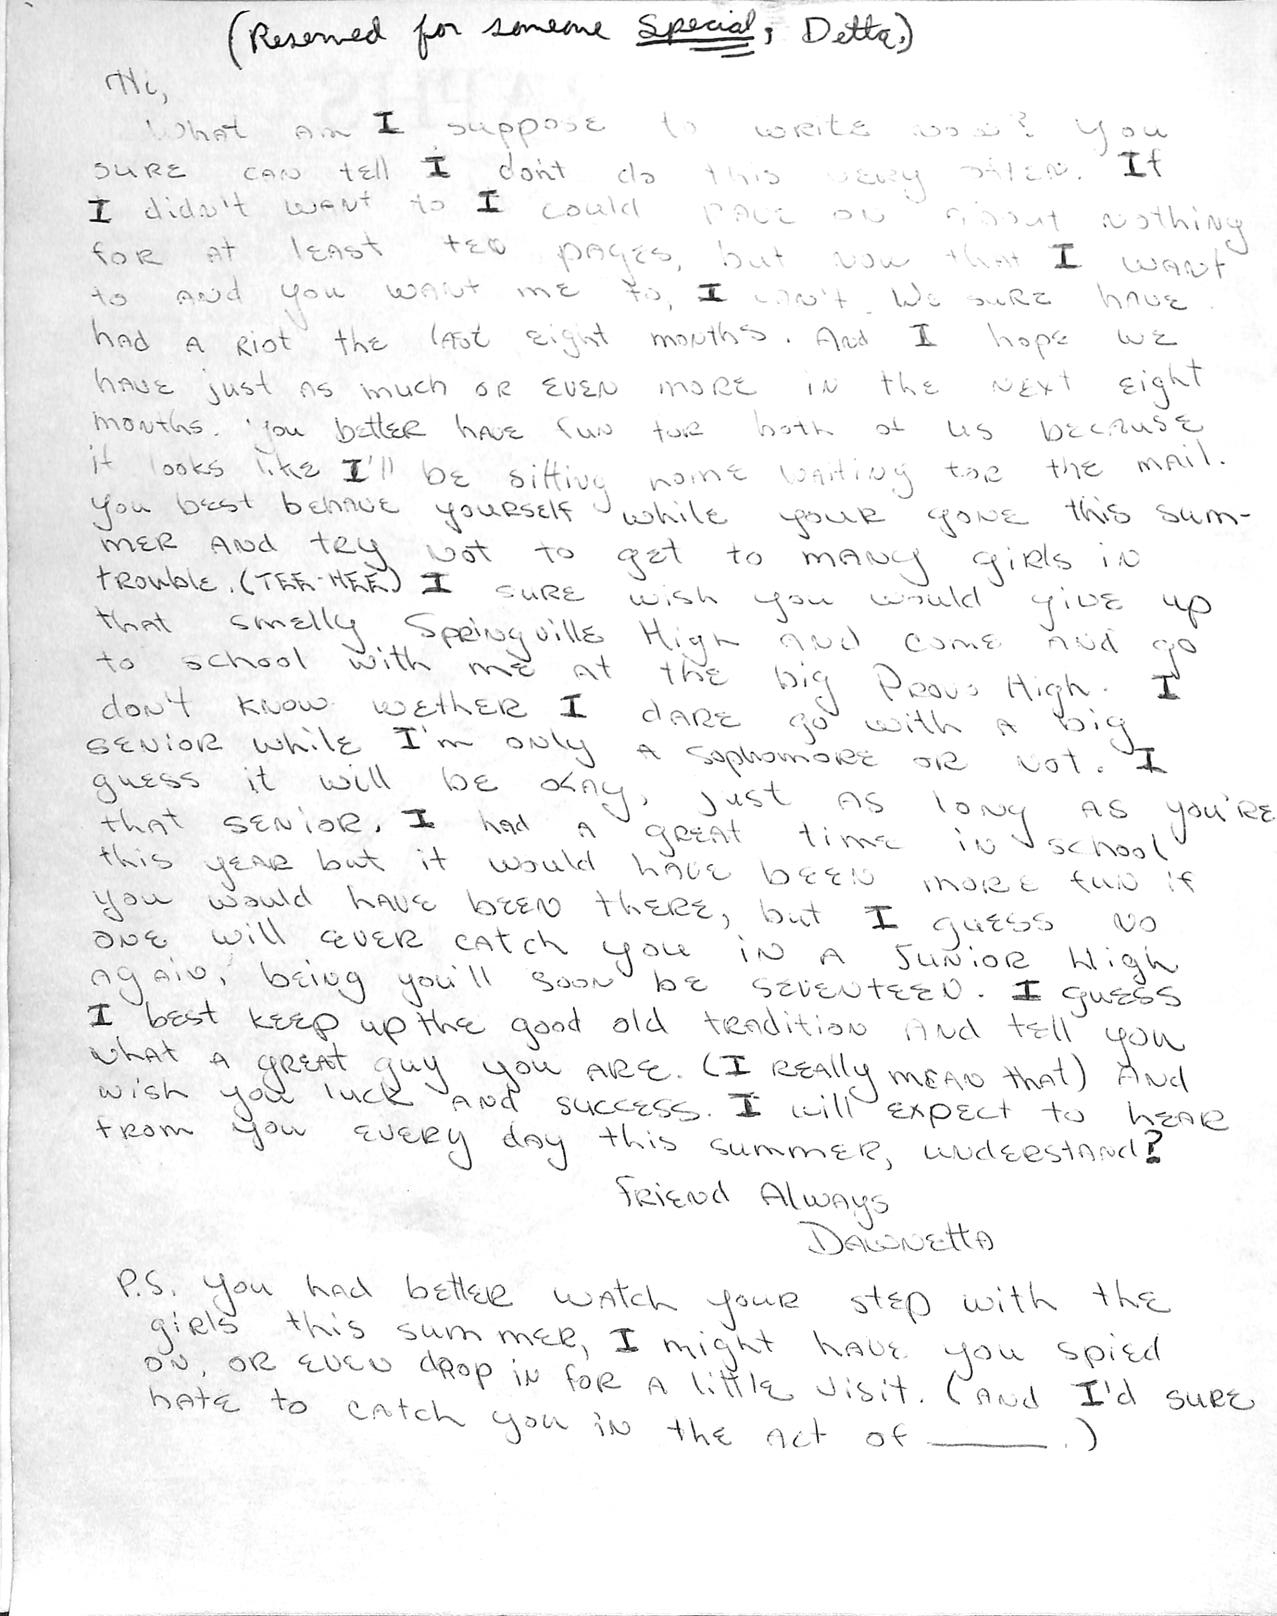 (Reserved for someone Special, Detta.)
Hi,
What am I suppose to write now? You
sure can tell I don't do this very often. If
I didn't want to I could rave on about nothing
for at least ten pages, but now that I want
to and you want me to, I can't. We sure have
had a riot the last eight months. And I hope we
have just as much or even more in the next eight
months. You better have fun for both of us because
it looks like I'll be sitting home waiting for the mail.
You best behave yourself while your gone this sum-
mer and try not to get to many girls in
trouble. (TEE-HEE) I sure wish you would give up
that smelly Springville High and come and go
to school with me at the big Provo High. I
don't know wether I dare go with a big
senior while I'm only a sophomore or not. I
guess it will be okay, just as long as you're
that senior. I had a great time in school
this year but it would have been more fun if
you would have been there, but I guess no
one will ever catch you in a Junior High
again, being you'll soon be seventeen. I guess
I best keep up the good old tradition and tell you
what a great guy you are. (I really mean that) And
wish you luck and success. I will expect to hear
from you every day this summer, understand?
Friend Always
Dawnetta
P.S. You had better watch your step with the
girls this summer, I might have you spied
on, or even drop in for a little visit. (And I'd sure
hate to catch you in the act of ______.)